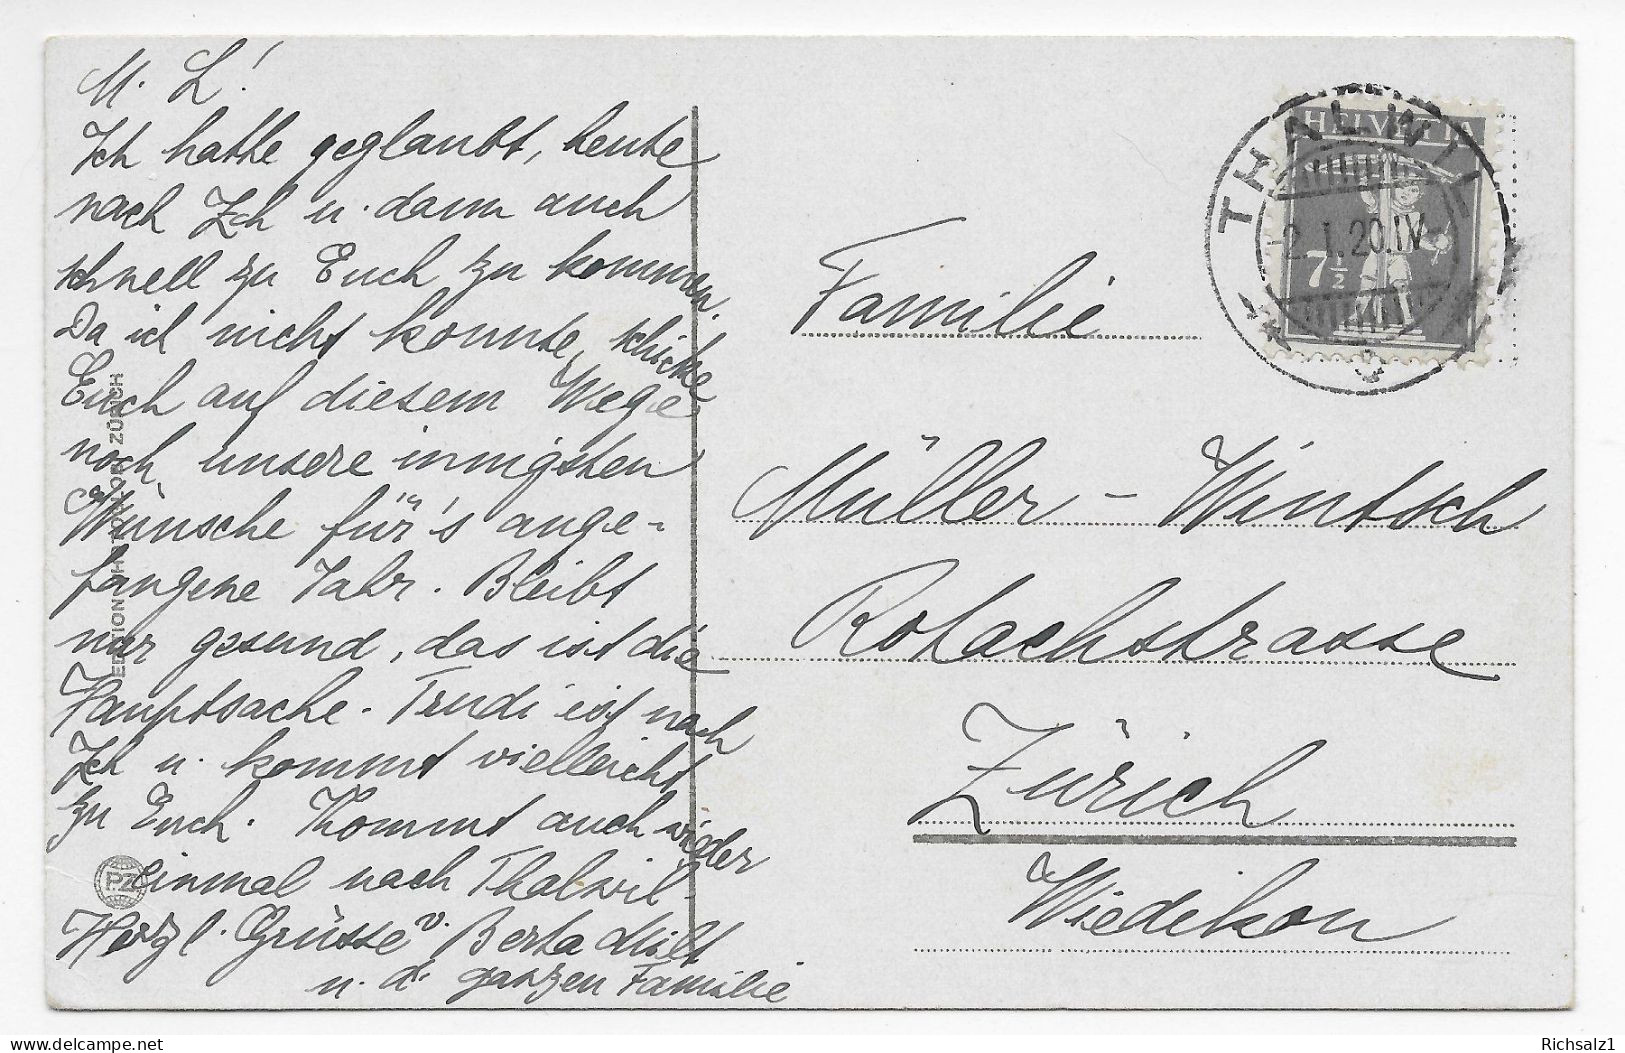 M. L!
Ich hatte geglaubt, heute
nach Zch u. dann auch
schnell zu Euch zu kommen.
Da ich nicht konnte, schicke
Euch auf diesem Wege
noch unsere innigsten
Wünsche für's ange-
fangene Jahr. Bleibt
nur gesund, das ist die
Hauptsache. Trudi ist nach
Zch u. kommt vielleicht
zu Euch. Kommt auch wieder
einmal nach Thalwil.
Herzl. Grüsse v. Berta
u. d. ganzen Familie
PZ
ZÜRICH
HELVETIA
7½
THALWIL
2.I.20.IV
Familie
Müller-Wintsch
Rotachstrasse
Zürich
Wiedikon
Richsalz1